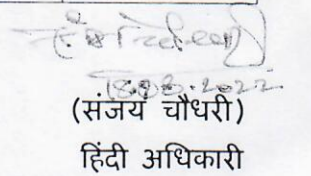 18.03.2022
(संजय चौधरी)
हिंदी अधिकारी